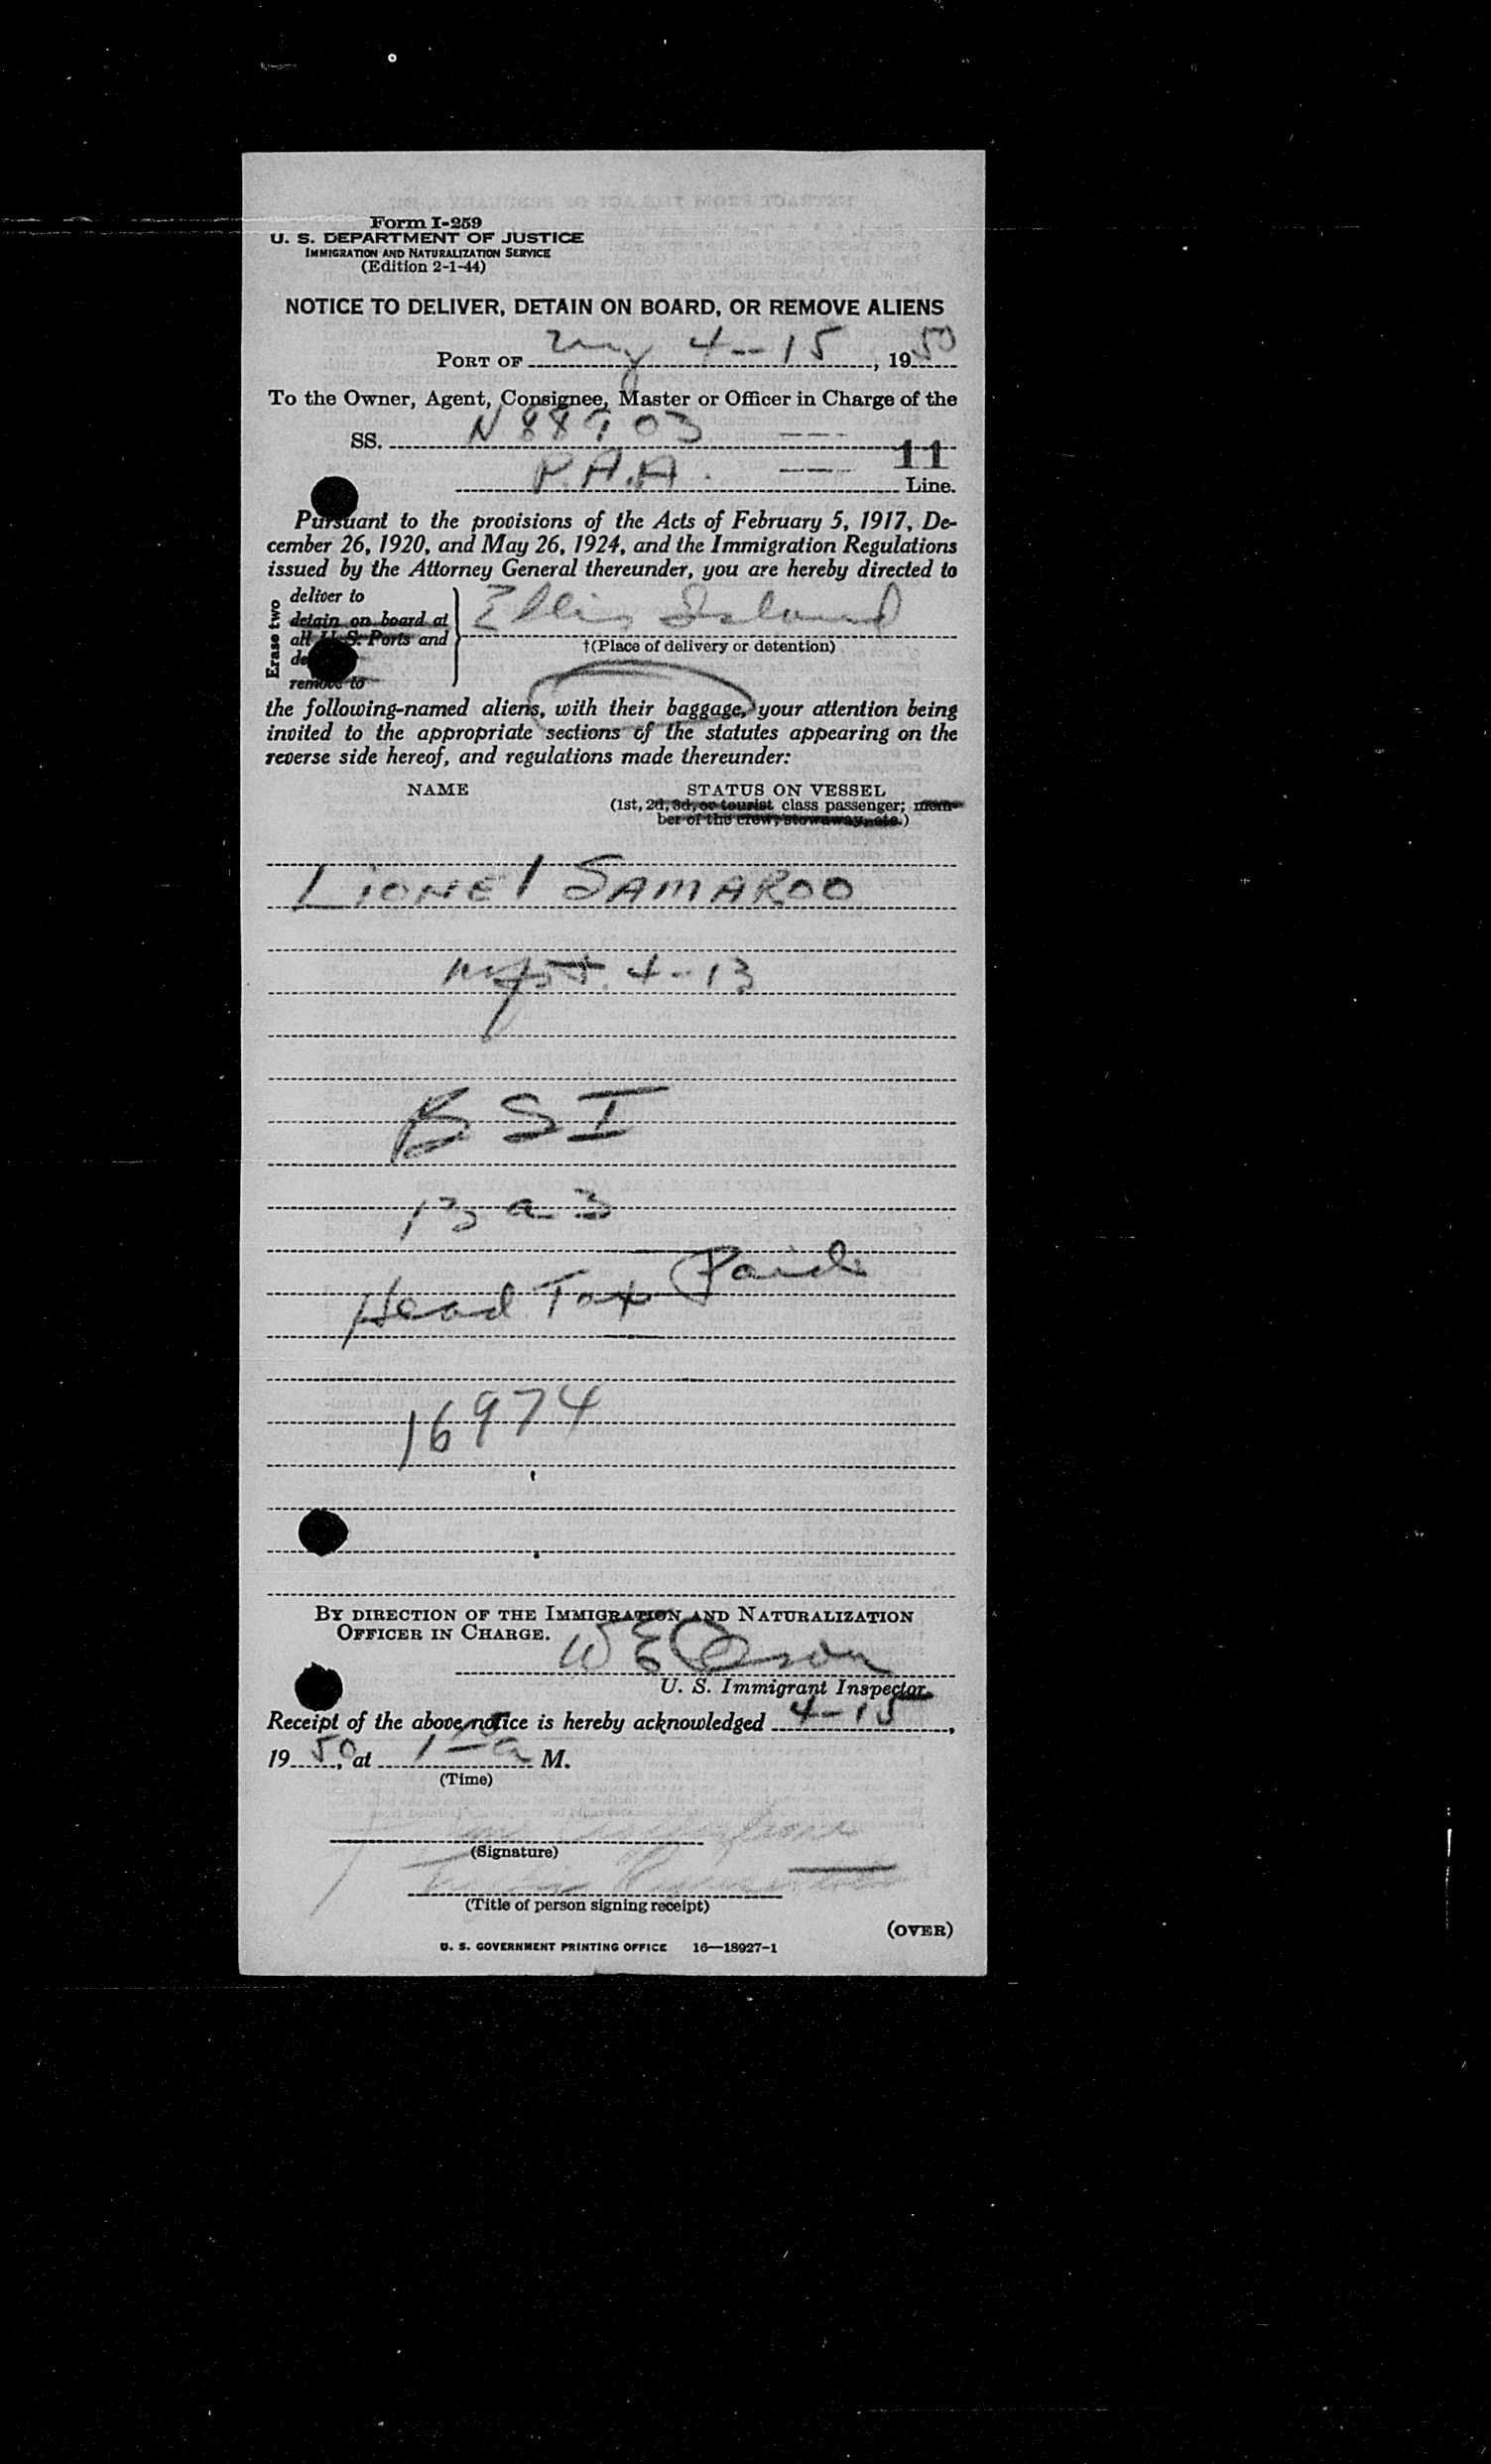 Form I-259
U. S. DEPARTMENT OF JUSTICE
IMMIGRATION AND NATURALIZATION SERVICE
(Edition 2-1-44)
NOTICE TO DELIVER, DETAIN ON BOARD, OR REMOVE ALIENS
PORT OF 4--15, 1950
To the Owner, Agent, Consignee, Master or Officer in Charge of the
SS. N 88903
11
P.A.A. Line.
Pursuant to the provisions of the Acts of February 5, 1917, De-
cember 26, 1920, and May 26, 1924, and the Immigration Regulations
issued by the Attorney General thereunder, you are hereby directed to
Erase two
deliver to
detain on board at
all U. S. Ports and
remove to
Ellis Island
†(Place of delivery or detention)
the following-named aliens, with their baggage, your attention being
invited to the appropriate sections of the statutes appearing on the
reverse side hereof, and regulations made thereunder:
NAME STATUS ON VESSEL
(1st, 2d, 3d, or tourist class passenger; mem-
ber of the crew, stowaway, etc.)
LIONEL SAMAROO
4--13
BSI
13 a 3
Head Tax Paid
16974
BY DIRECTION OF THE IMMIGRATION AND NATURALIZATION
OFFICER IN CHARGE.
U. S. Immigrant Inspector.
Receipt of the above notice is hereby acknowledged 4-15,
1950, at 1 — a M.
(Time)
(Signature)
(Title of person signing receipt)
(OVER)
U. S. GOVERNMENT PRINTING OFFICE 16—18927-1